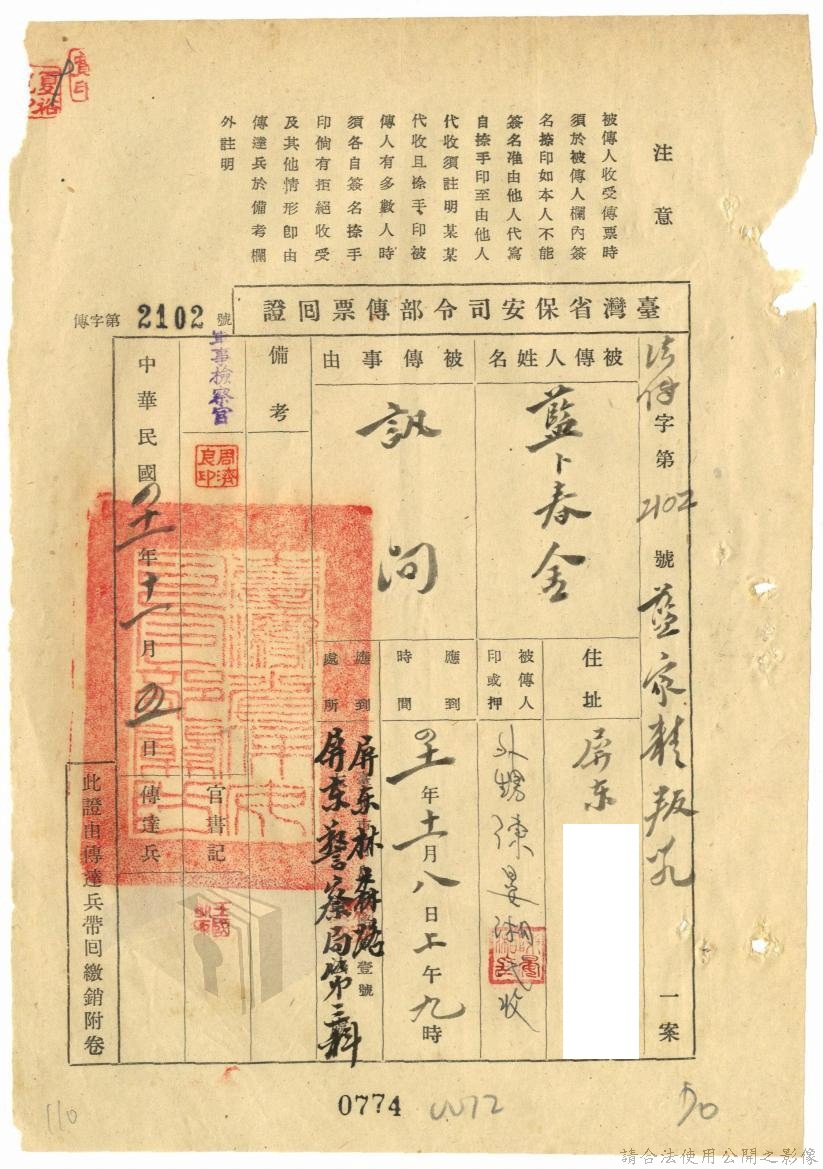 注意
被傳人收受傳票時
須於被傳人欄內簽
名捺印如本人不能
簽名准由他人代寫
自捺手印至由他人
代收須註明某某
代收且捺手印被
傳人有多數人時
須各自簽名捺手
印倘有拒絕收受
及其他情形卽由
傳達兵於備考欄
外註明
臺灣省保安司令部傳票回證
傳字第2102號
法字第2102號藍家精叛亂一案
被傳人姓名
藍卜春金
住址
屏东
被傳人
印或押
被傳事由
訊問
應到
時間
四十一年十一月八日上午九時
應到
處所
屏东林森路壹號
屏东警察局第三科
備考
軍事檢察官
周濟
良印
書記官
傳達兵
中華民國四十一年十一月五日
此證由傳達兵帶回繳銷附卷
0774
110
50
請合法使用公開之影像